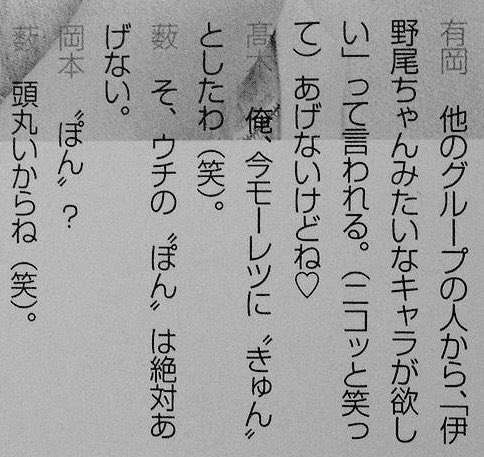 有岡　他のグループの人から、「伊
野尾ちゃんみたいなキャラが欲し
い」って言われる。（ニコッと笑っ
て）あげないけどね♡
髙木　俺、今モーレツに〝きゅん〟
としたわ（笑）。
薮　そ、ウチの〝ぽん〟は絶対あ
げない。
岡本　〝ぽん〟？
薮　頭丸いからね（笑）。